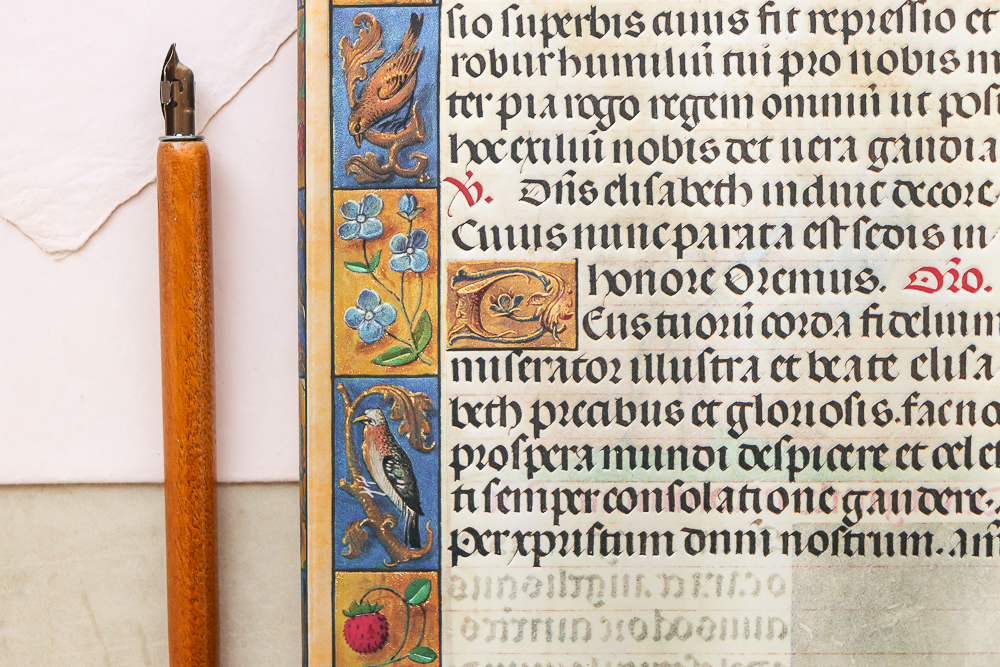 sio superbis cuius fit repressio et
robur humiliū tui pro nobis m
ter pia rogo regem omniū ut post
hoc exiliū nobis det uera gaudia
℣. Dn̄s elisabeth induit decore
Cuius nunc parata est sedis in
honore Oremus. Or̄o.
Deus tuorū corda fidelium
miserator illustra et beate elisa
beth precibus et gloriosis. fac no
prospera mundi despicere et cele
ti semper consolatione gaudere.
Per xpristum dnm̄ nostrum. am